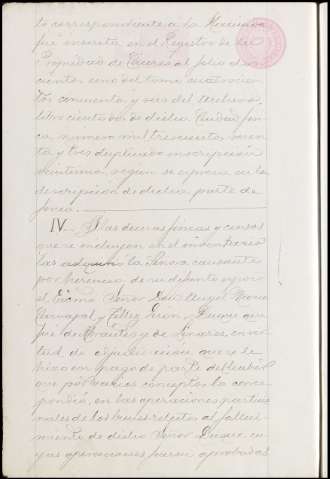 to correspondiente a la Hacienda
fué inscrita en el Registro de la
Propiedad de Cáceres al folio dos
cientos uno del tomo cuatrocien
tos cincuenta y seis del archivo,
libro ciento dos de dicha Ciudad, fin
ca número mil trescientos
y tres duplicado inscripción
según se expresa en la
descripción de dicha parte de
finca.
IV.- Las demas fincas y censos
que se incluyen en el inventario
las adquirió la Señora causante
por herencia de su difunto esposo
el Excmo Señor Don María
Carvajal y Tellez Giron, Duque que
fué de Abrantes y de Linares, en vir
tud de adjudicacion que se le
hizo en pago de parte del haber
que por varios conceptos la corres
pondió, en las operaciones particio
nales de los bienes relictos al falleci
miento de dicho Señor Duque, cu
yas operaciones fueron aprobadas